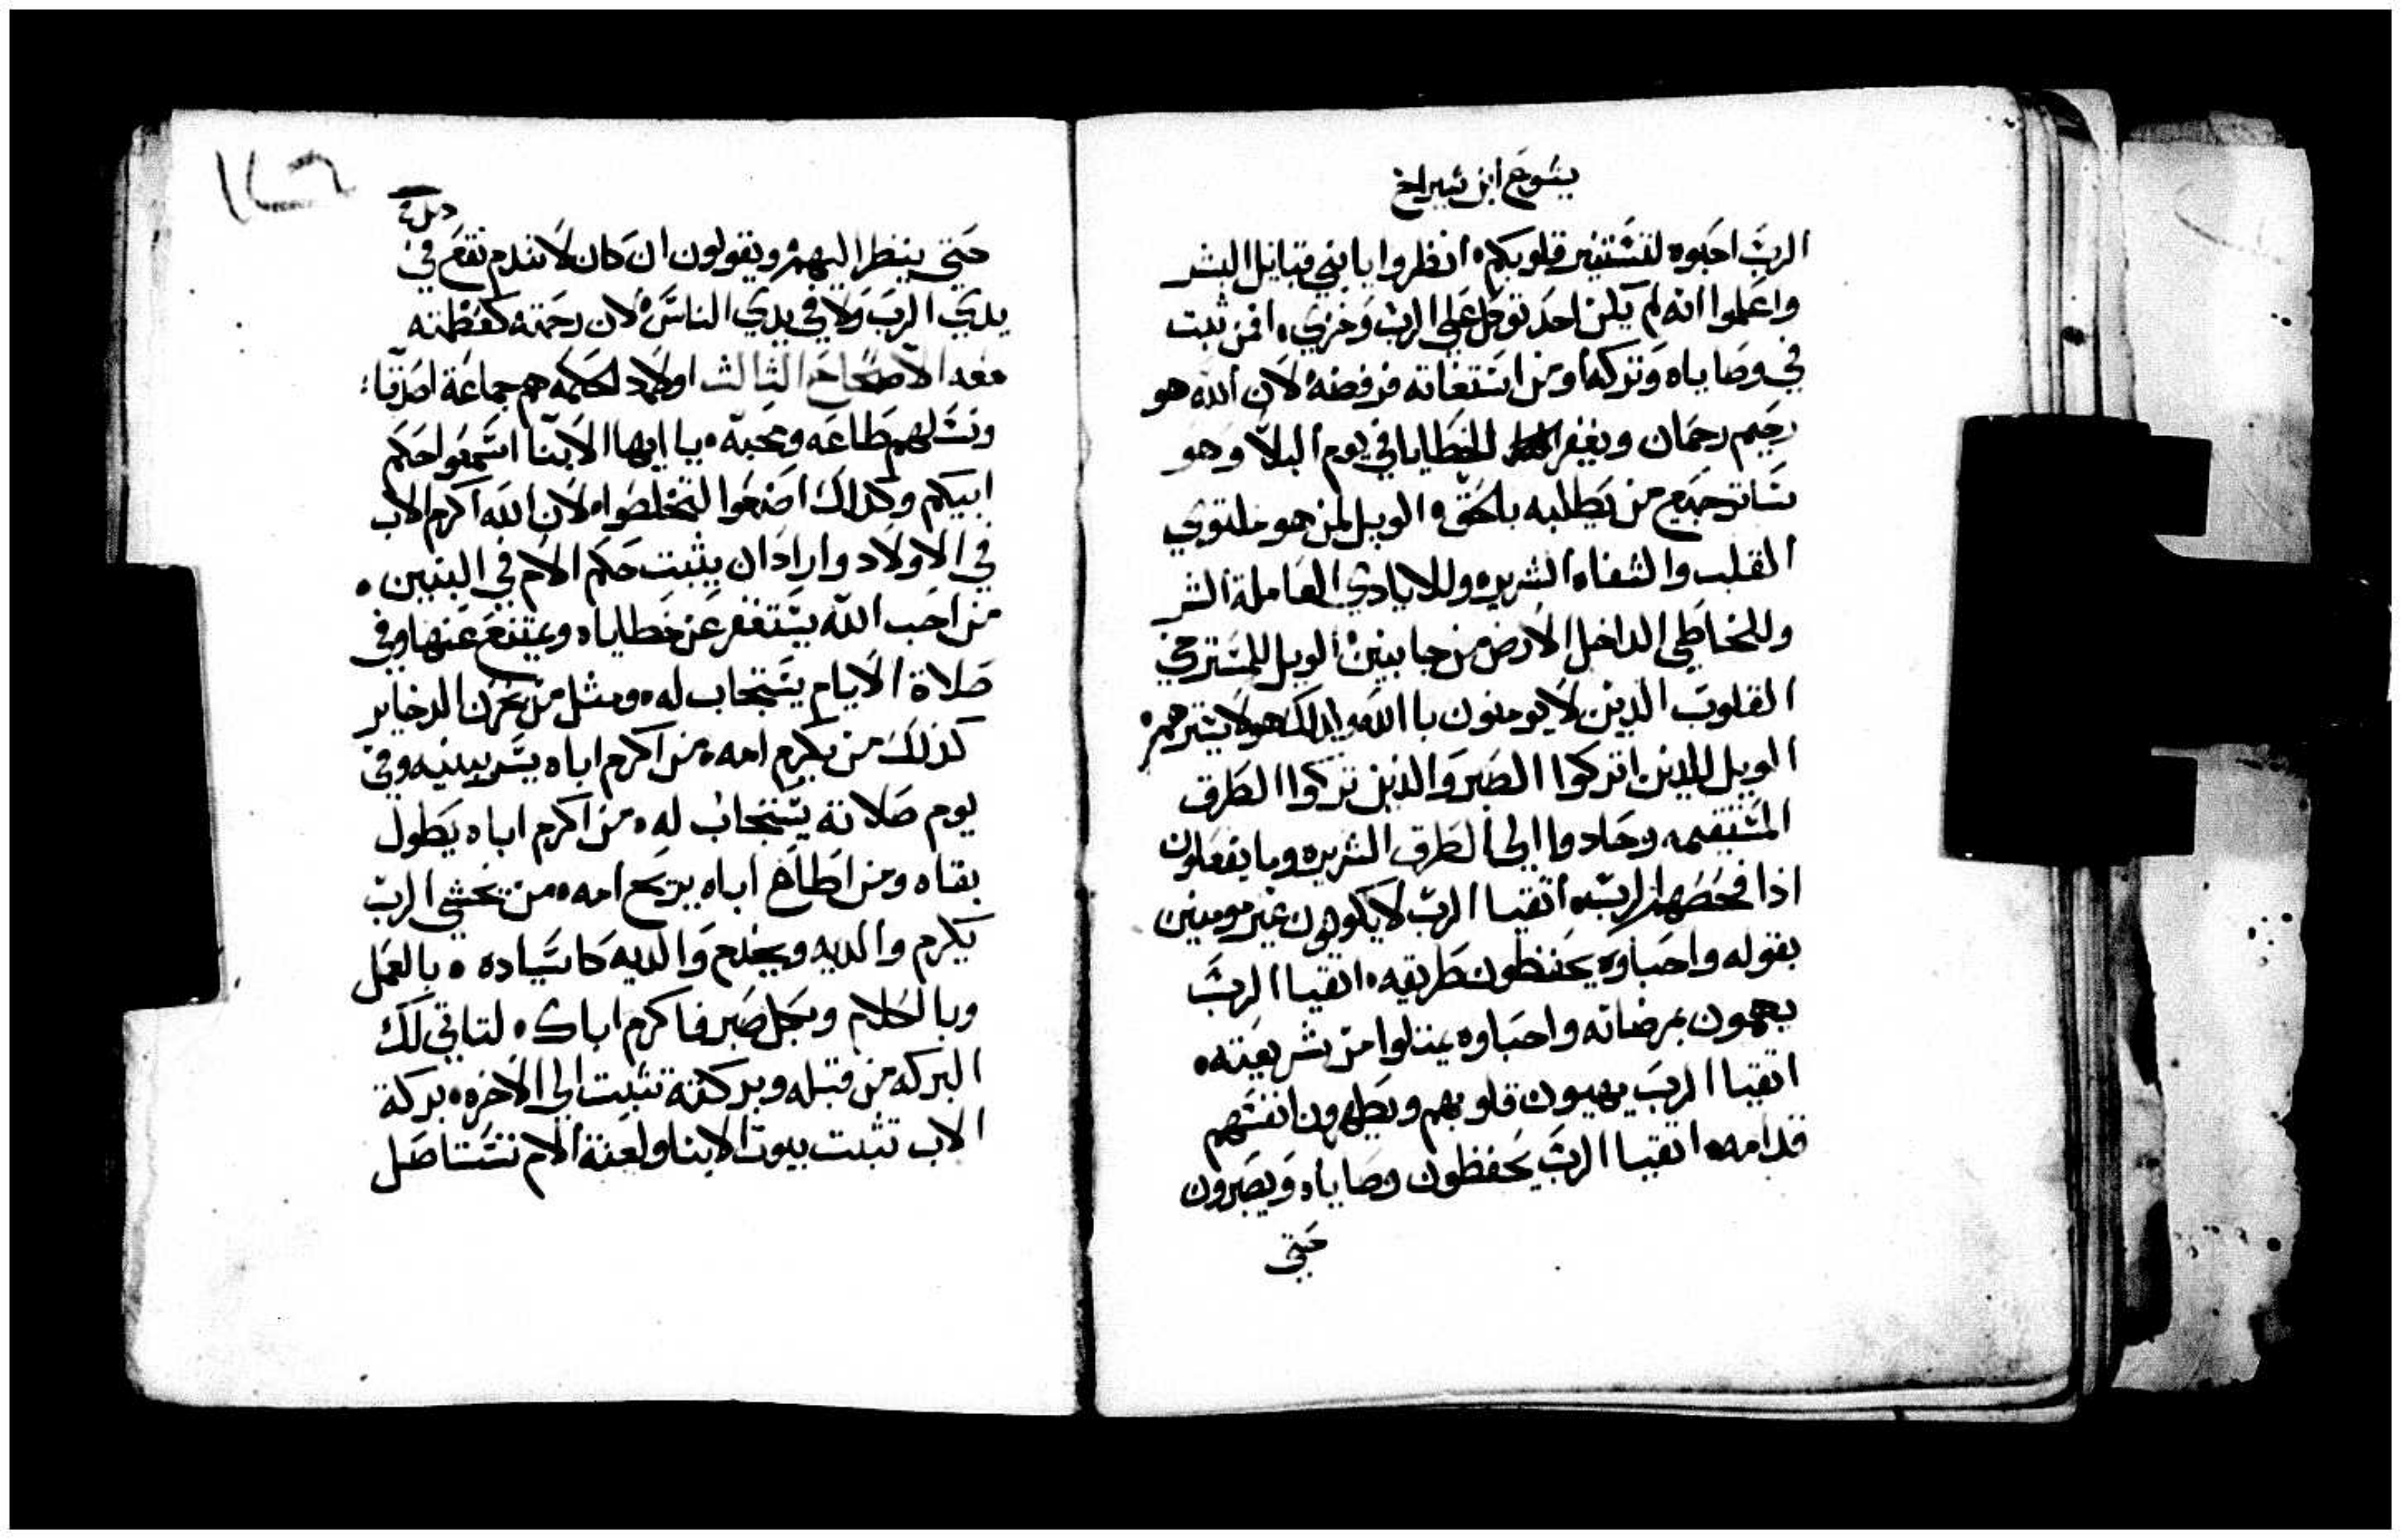 يشوع ابن شيراخ
الرب احبوه لتستنير قلوبكم، انظروا يا بني قبايل البشر
واعلموا انه لم يكن احد توكل على الرب وخزي، افمن ثبت
في وصاياه وتركه او من استغاثه فرفضه لان الله هو
رحيم رحمان ويغفر الخطايا في يوم البلا وهو
ساتر جميع من يطلبه بالحق، الويل لمن هو ملتوي
القلب والشفاه الشريره وللايادي العاملة الشر
وللخاطي الداخل الارض من جانبين الويل للمسترخي
القلوب الذين لا يومنون با الله ولذلك هو لا يسترهم
الويل للدين اتركوا الصبر والذين تركوا الطرق
المستقيمه وحادوا الى الطرق الشريره وما يفعلون
اذا فحصهم الرب، اتقيا الرب لا يكونون غير مومنين
بقوله واحباوه يحفظون طريقه، اتقيا الرب
يهمون بمرضاته واحباوه يمتلوا من شريعته،
اتقيا الرب يهيون قلوبهم ويطهرون انفسهم
قدامه، اتقيا الرب يحفظون وصاياه ويصبرون
حتى
حتى ينظر اليهم ويقولون ان كان لا نندم نقع في
يدي الرب ولا في يدي الناس لان رحمته كعظمته
معه الاصحاح الثالث اولاد الحكمه هم جماعة اصدقا
ونسلهم طاعه ومحبة، يا ايها الابنا اسمعوا حكم
ابيكم وكذلك اصنعوا لتخلصوا، لان الله اكرم الاب
في الاولاد واراد ان يثبت حكم الام في البنين،
من احب الله يستغفر عن خطاياه ويمتنع عنها وفي
صلاة الايام يستجاب له، ومثل من يخزن الدخاير
كذلك من يكرم امه، من اكرم اباه يسر ببنيه وفي
يوم صلاته يستجاب له، من اكرم اباه يطول
بقاه ومن اطاع اباه يريح امه، من يخشى الرب
يكرم والديه ويخدم والديه كاسياده، بالعمل
وبالكلام وبكل صبر فاكرم اباك، لتاتي لك
البركه من قبله وبركته تثبت الى الاخره، بركة
الاب تثبت بيوت الابنا ولعنة الام تستاصل